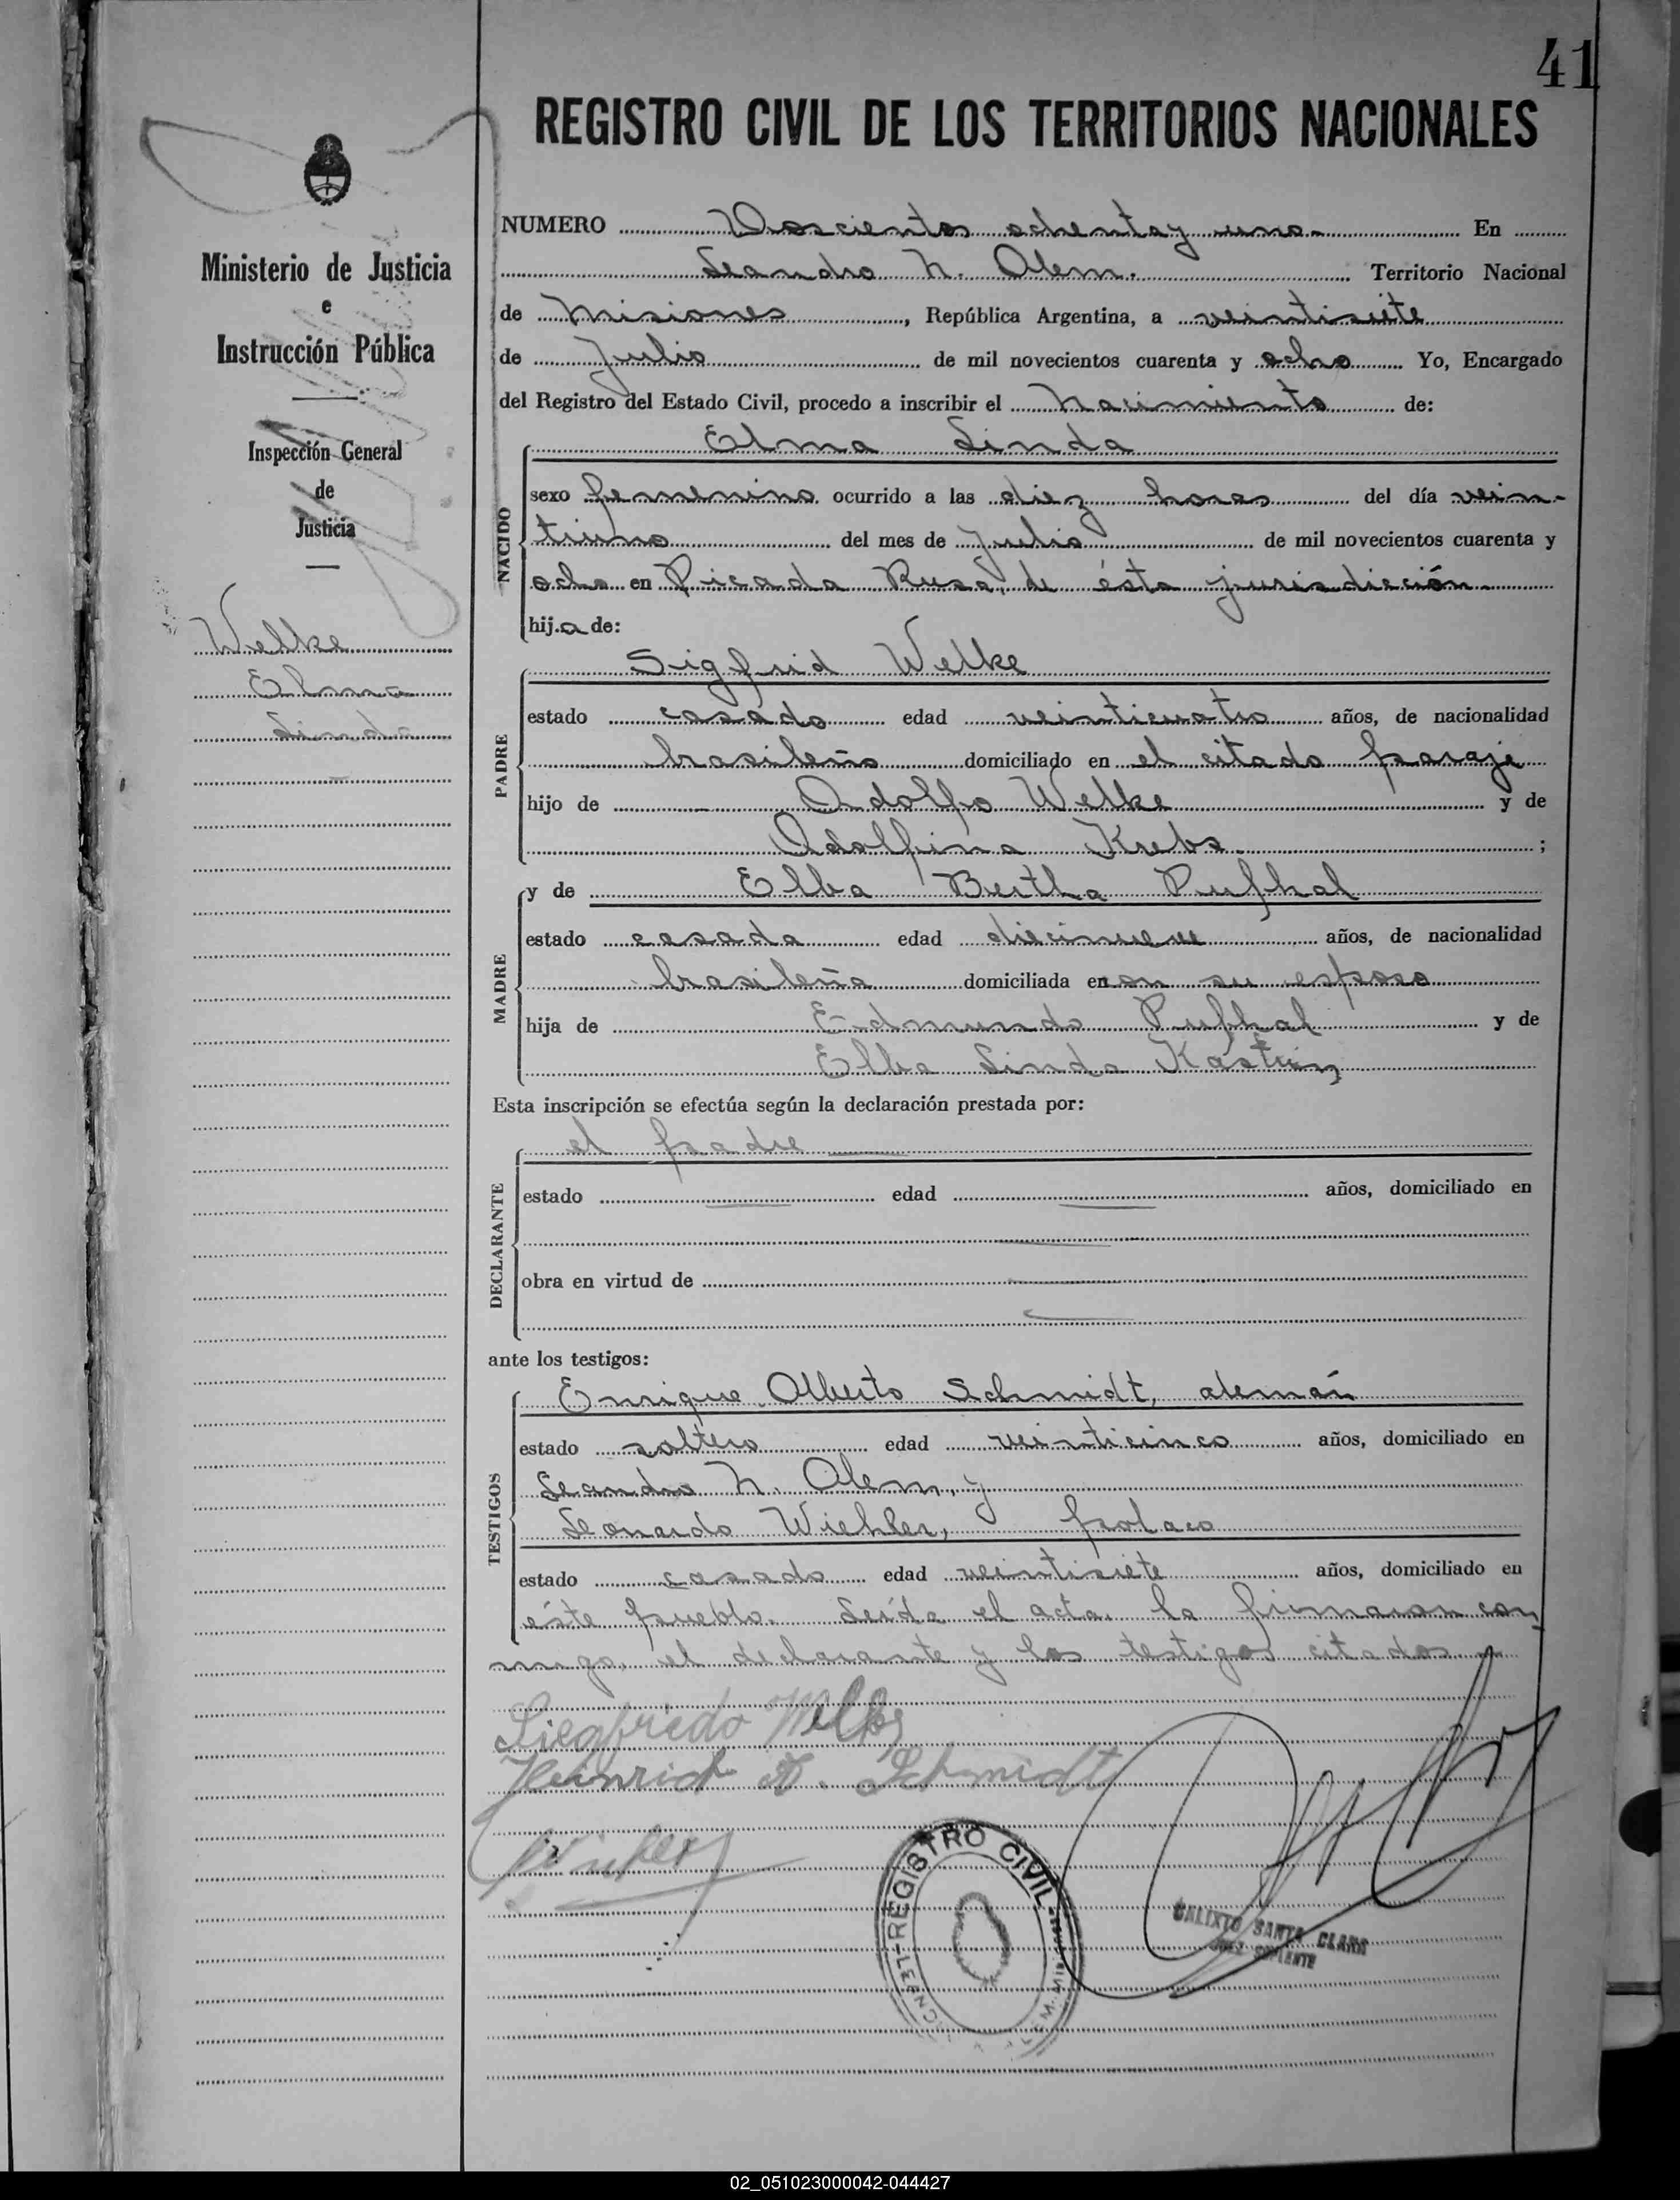 41
REGISTRO CIVIL DE LOS TERRITORIOS NACIONALES
Ministerio de Justicia
e
Instrucción Pública
Inspección General
de
Justicia
Welke
Elma
Linda
NUMERO Doscientos ochenta y uno.- En
Leandro N. Alem. Territorio Nacional
de Misiones, República Argentina, a veintisiete
de Julio de mil novecientos cuarenta y ocho Yo, Encargado
del Registro del Estado Civil, procedo a inscribir el Nacimiento de:
NACIDO
Elma Linda
sexo femenino ocurrido a las diez horas del día vein-
tiuno del mes de Julio de mil novecientos cuarenta y
ocho en Picada Rusa, de ésta jurisdicción.
hij.a de:
PADRE
Sigfrid Welke
estado casado edad veinticuatro años, de nacionalidad
brasileño domiciliado en el citado paraje
hijo de Adolfo Welke y de
Adolfina Krebs ;
MADRE
y de Elba Bertha Pufhal
estado casada edad diecinueve años, de nacionalidad
brasileña domiciliada en con su esposo
hija de Edmundo Pufhal y de
Elba Linda
Esta inscripción se efectúa según la declaración prestada por:
DECLARANTE
el padre
estado edad años, domiciliado en
obra en virtud de
ante los testigos:
TESTIGOS
Enrique Alberto Schmidt, alemán
estado soltero edad veinticinco años, domiciliado en
Leandro N. Alem, y
Leonardo Wiehler, polaco
estado casado edad veintisiete años, domiciliado en
éste pueblo. Leída el acta, la firmaron con
migo, el declarante y los testigos citados
Siegfriedo Welke
Heinrich A. Schmidt
Wiehler
REGISTRO CIVIL
CALIXTO SANTA CLARA
JUEZ SUPLENTE
02_051023000042-044427